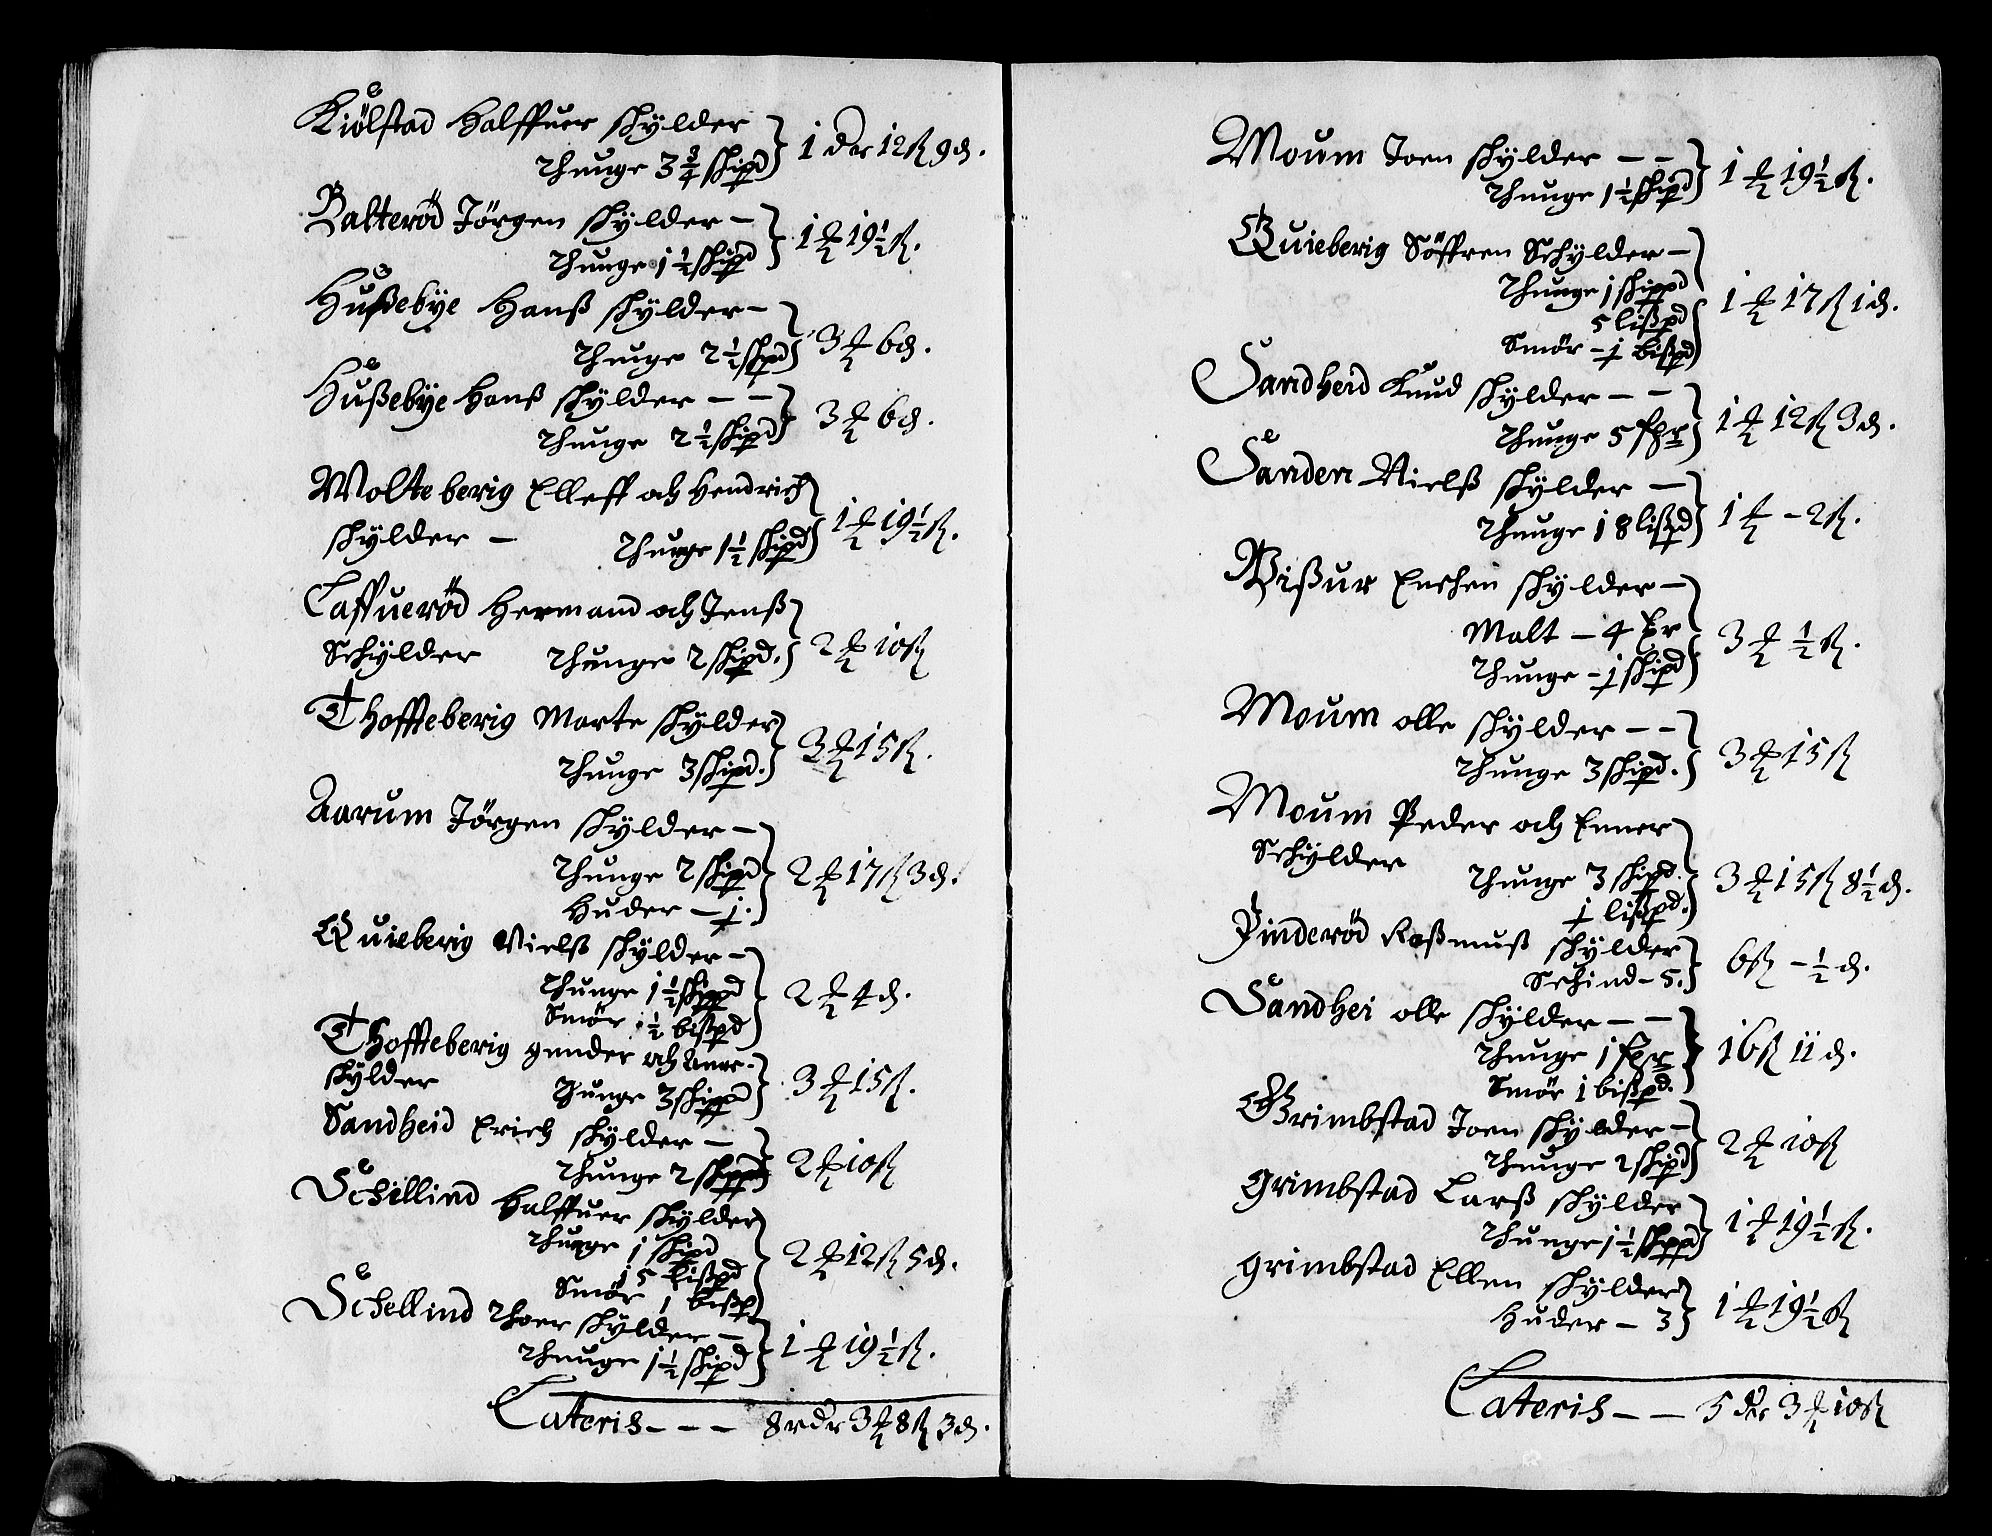 Kiölstad Halffuer skylder
Thunge 3 3/4 skipd } 1 dr 12 ß 9 d.
Balterød Jörgen skylder –
Thunge 1 1/2 skipd } 1 ₰ 19 1/2 ß.
Hußebye Hanß skylder –
Thunge 2 1/2 skpd } 3 ₰ 6 d.
Hußebye Hanß skylder – –
Thunge 2 1/2 skipd } 3 ₰ 6 d.
Molteberig Elleff och Hendrich
skylder – Thunge 1 1/2 skipd } 1 ₰ 19 1/2 ß.
Laffuerød Hermand och Jenß
Schylder Thunge 2 skipd. } 2 ₰ 10 ß
Thoffteberig Marte skylder
Thunge 3 skipd. } 3 ₰ 15 ß.
Aarum Jörgen skylder –
Thunge 2 skipd
Huder – j. } 2 ₰ 17 ß 3 d.
Quieberig Nielß skylder –
Thunge 1 1/2 skippd
Smör 1/2 bißpd } 2 ₰ 4 d.
Thoffteberig gunder och
skylder Thunge 3 skippd } 3 ₰ 15 ß.
Sandheid Erich skylder –
Thunge 2 skippd } 2 ₰ 10 ß
Schillind Halffuer skylder
Thunge j skipd
15 lißpd
Smör 1 bißp } 2 ₰ 12 ß 5 d.
Schellind Thoer skylder –
Thunge 1 1/2 skipd } 1 ₰ 19 1/2 ß.
Lateris – – – 8 rdr 3 ₰ 8 ß 3 d.
Moum Joen skylder – –
Thunge 1 1/2 skipd } 1 ₰ 19 1/2 ß.
Quieberig Söffren Schylder –
Thunge j skippd
5 lißpd
Smör – j bißpd } 1 ₰ 17 ß 1 d.
Sandheid Knud skylder – –
Thunge 5 fpr } 1 ₰ 12 ß 3 d.
Sanden Nielß skylder –
Thunge 18 lißpd } 1 ₰ – 2 ß.
Wißur Enchen skylder –
Malt – 4 tr
Thunge – j skipd } 3 ₰ 1/2 ß.
Moum olle skylder – –
Thunge 3 skipd. } 3 ₰ 15 ß
Moum Peder och Enner
Schylder Thunge 3 skipd.
j lißpd. } 3 ₰ 15 ß 8 1/2 d.
Pinderød Raßmuß skylder
Schind – 5. } 6 ß – 1/2 d.
Sandhei olle skylder – –
Thunge j fpr
Smör 1 bißpd. } 16 ß 11 d.
Grimbstad Joen skylder –
Thunge 2 skipd } 2 ₰ 10 ß
Grimbstad Larß skylder
Thunge 1 1/2 skppd } 1 ₰ 19 1/2 ß.
Grimbstad Ellen skylder
Huder – 3 } 1 ₰ 19 1/2 ß
Lateris – – 5 dr 3 ₰ 10 ß